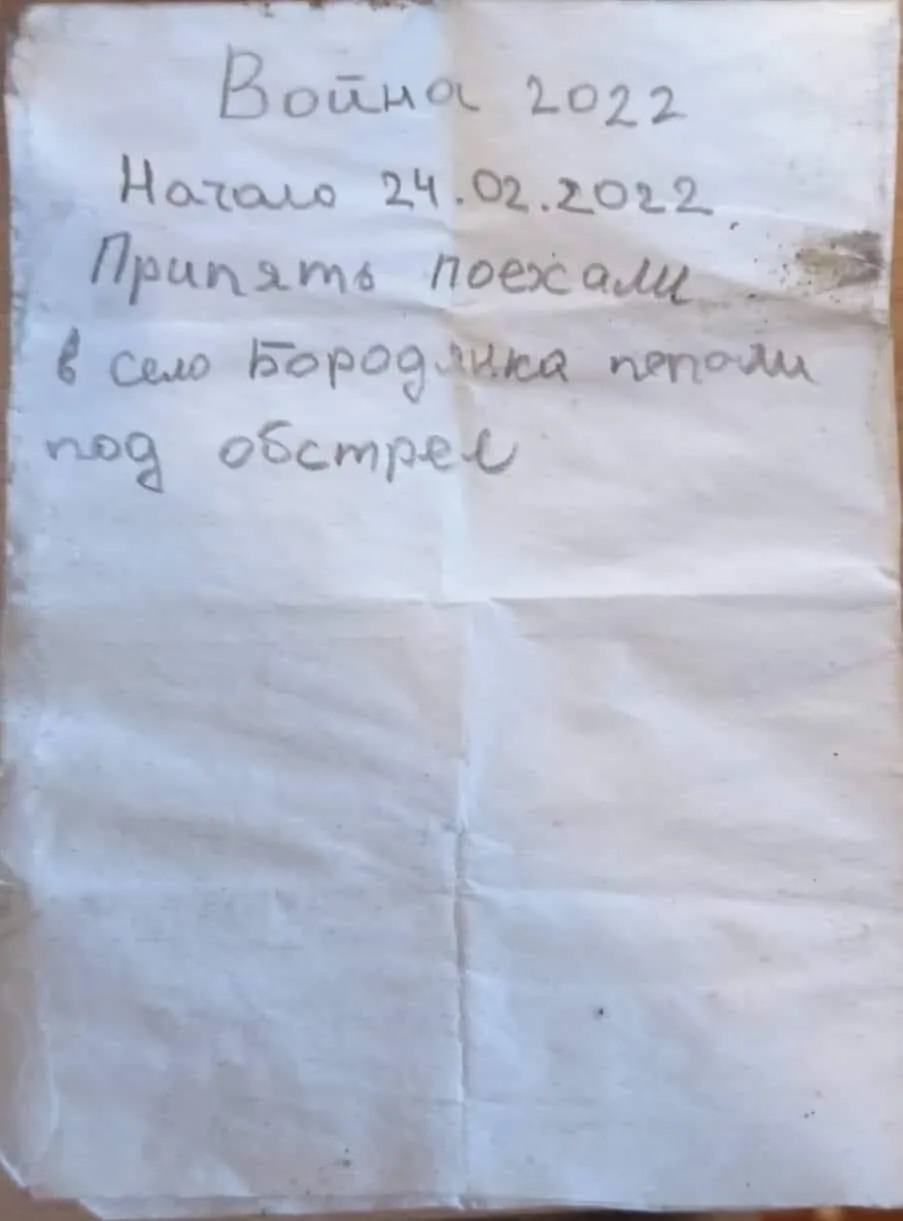 Война 2022
Начало 24.02.2022
Припять поехали
в село Бородянка попали
под обстрел